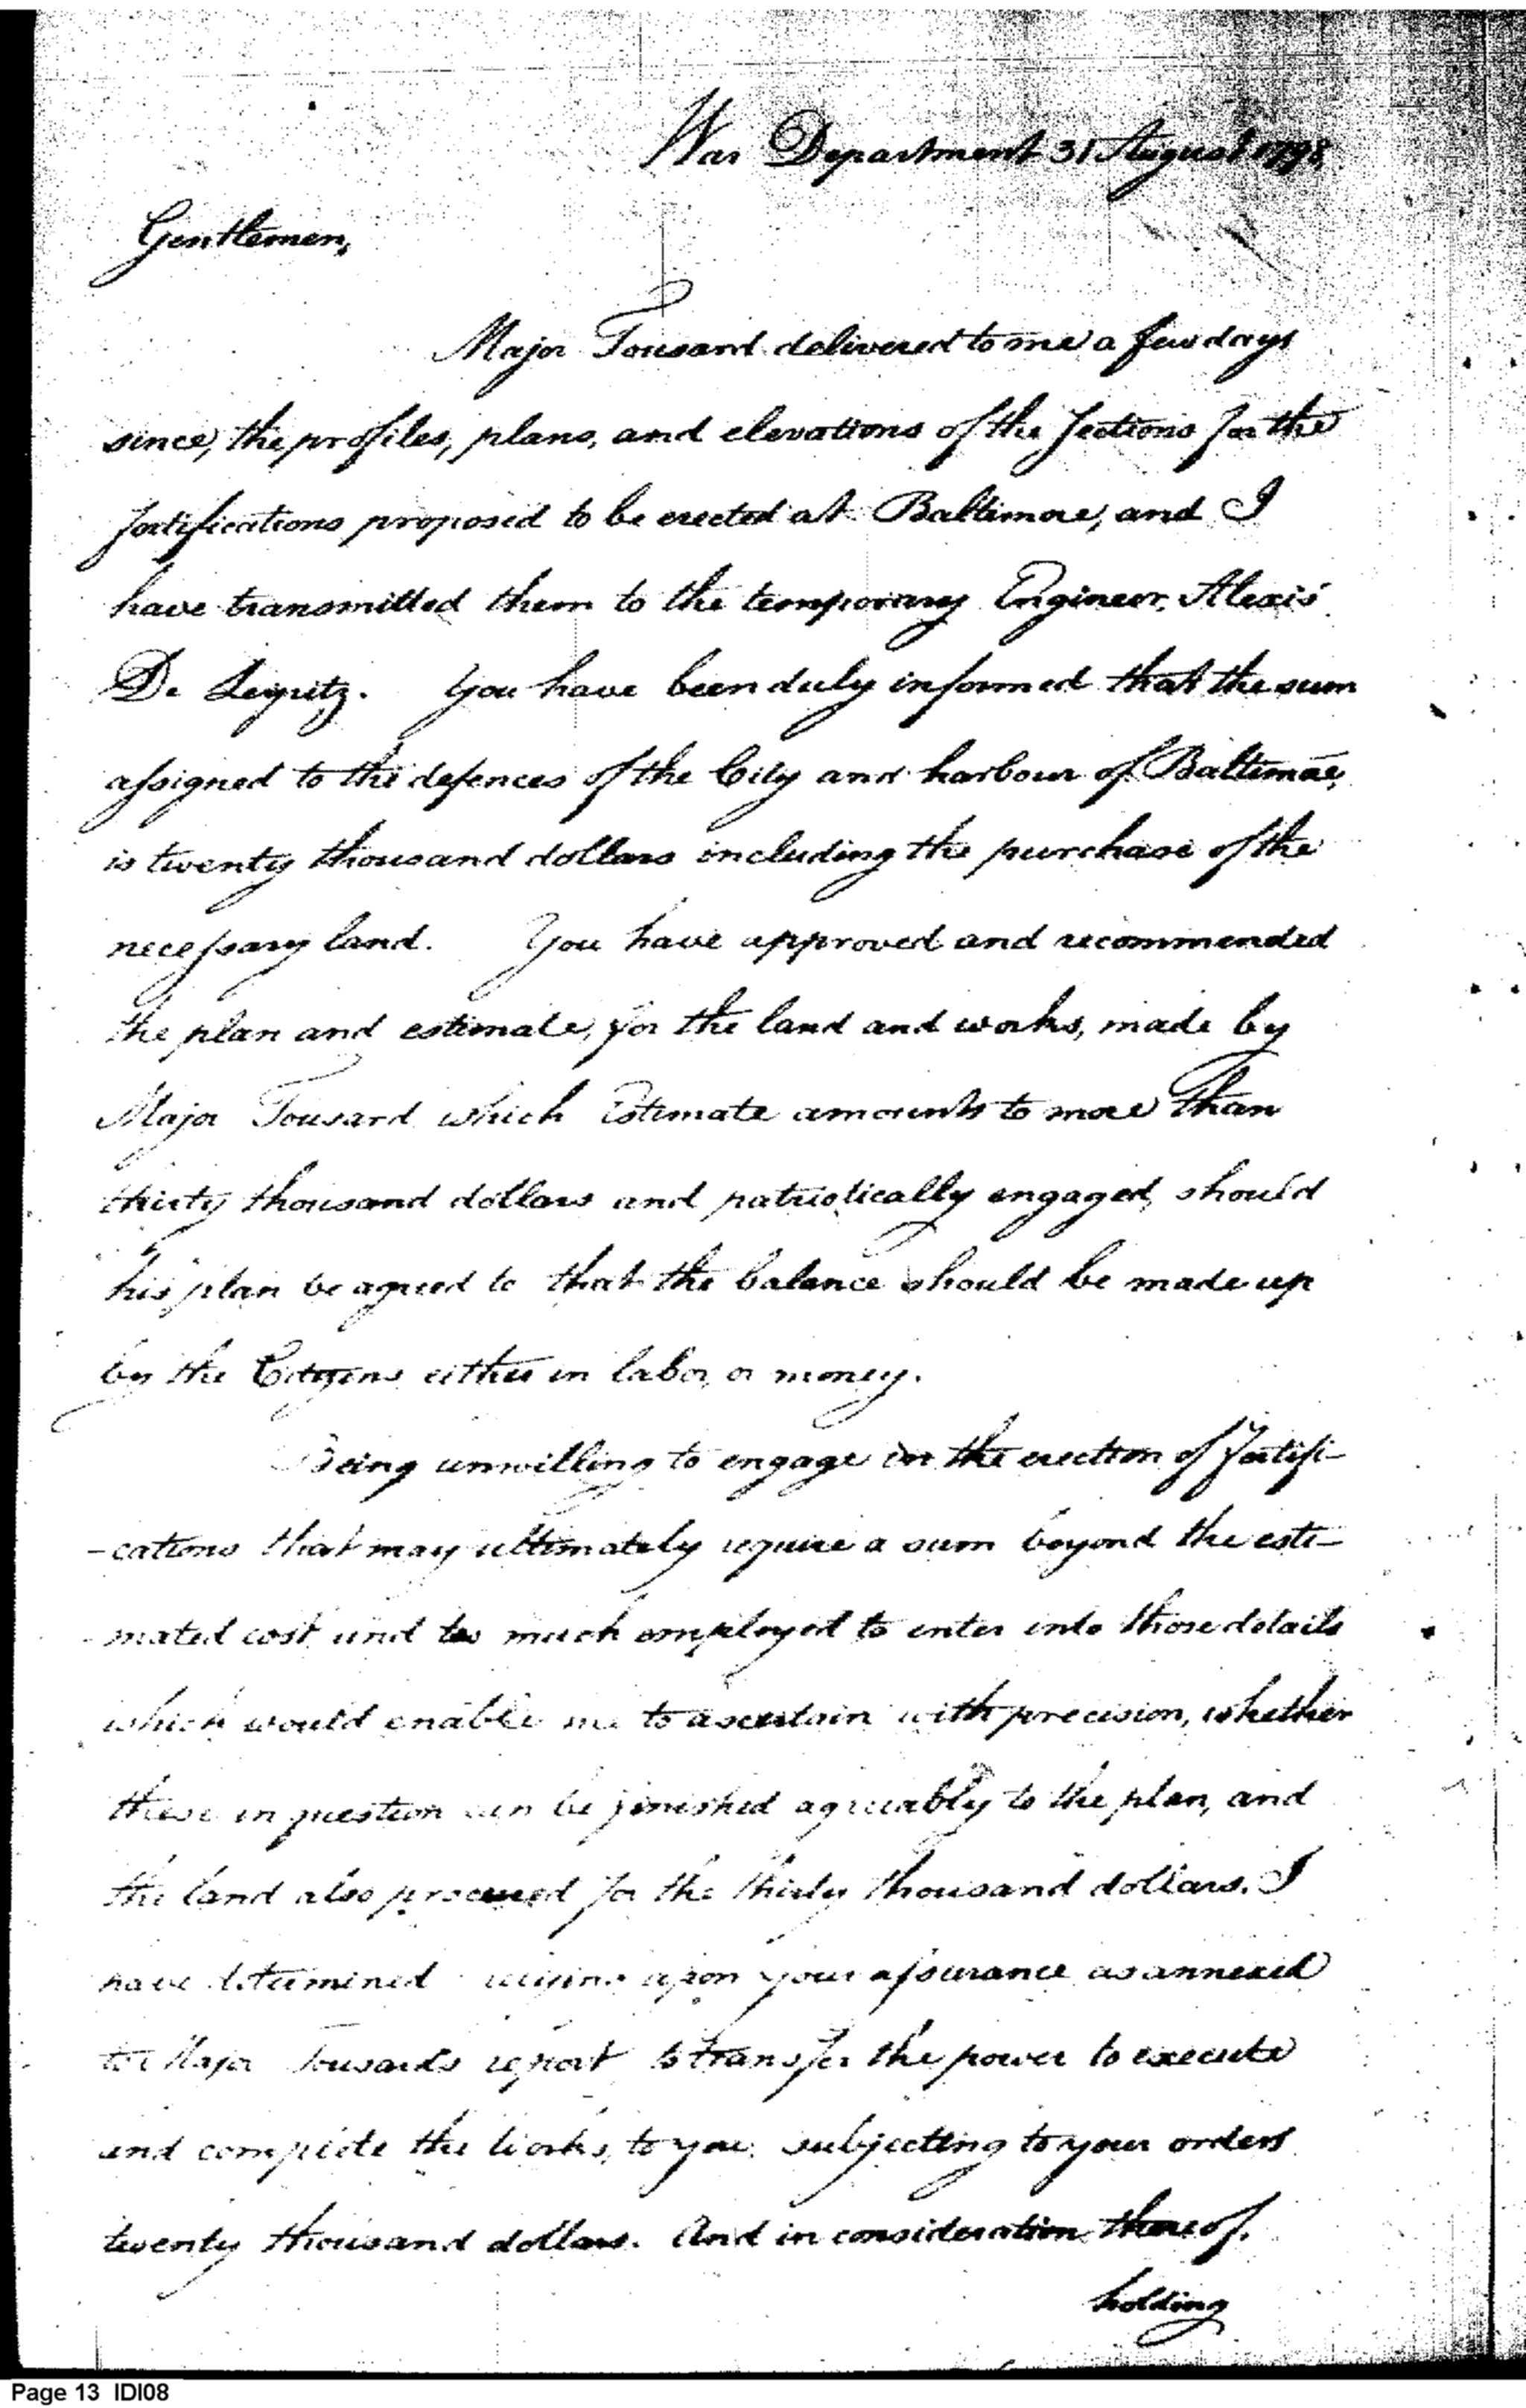 War Department 31 August 1798
Gentlemen,
Major Tousard delivered to me a few days
since, the profiles, plans, and elevations of the Sections for the
fortifications proposed to be erected at Baltimore, and I
have transmitted them to the temporary Engineer, Alexis
De Leyritz. You have been duly informed that the sum
assigned to the defences of the City and harbour of Baltimore,
is twenty thousand dollars including the purchase of the
necessary land. You have approved and recommended
the plan and estimate, for the land and works, made by
Major Tousard which Estimate amounts to more than
thirty thousand dollars and patriotically engaged, should
his plan be agreed to that the balance should be made up
by the Citizens either in labor or money.
Being unwilling to engage in the erection of fortifi-
-cations that may ultimately require a sum beyond the esti-
-mated cost and too much employed to enter into those details
which would enable me to ascertain with precision, whether
these in question can be finished agreeably to the plan, and
the land also procured for the thirty thousand dollars. I
have determined relying upon your assurance as annexed
to Major Tousard's report to transfer the power to execute
and complete the works, to you, subjecting to your orders
twenty thousand dollars. And in consideration thereof.
holding
Page 13 IDI08